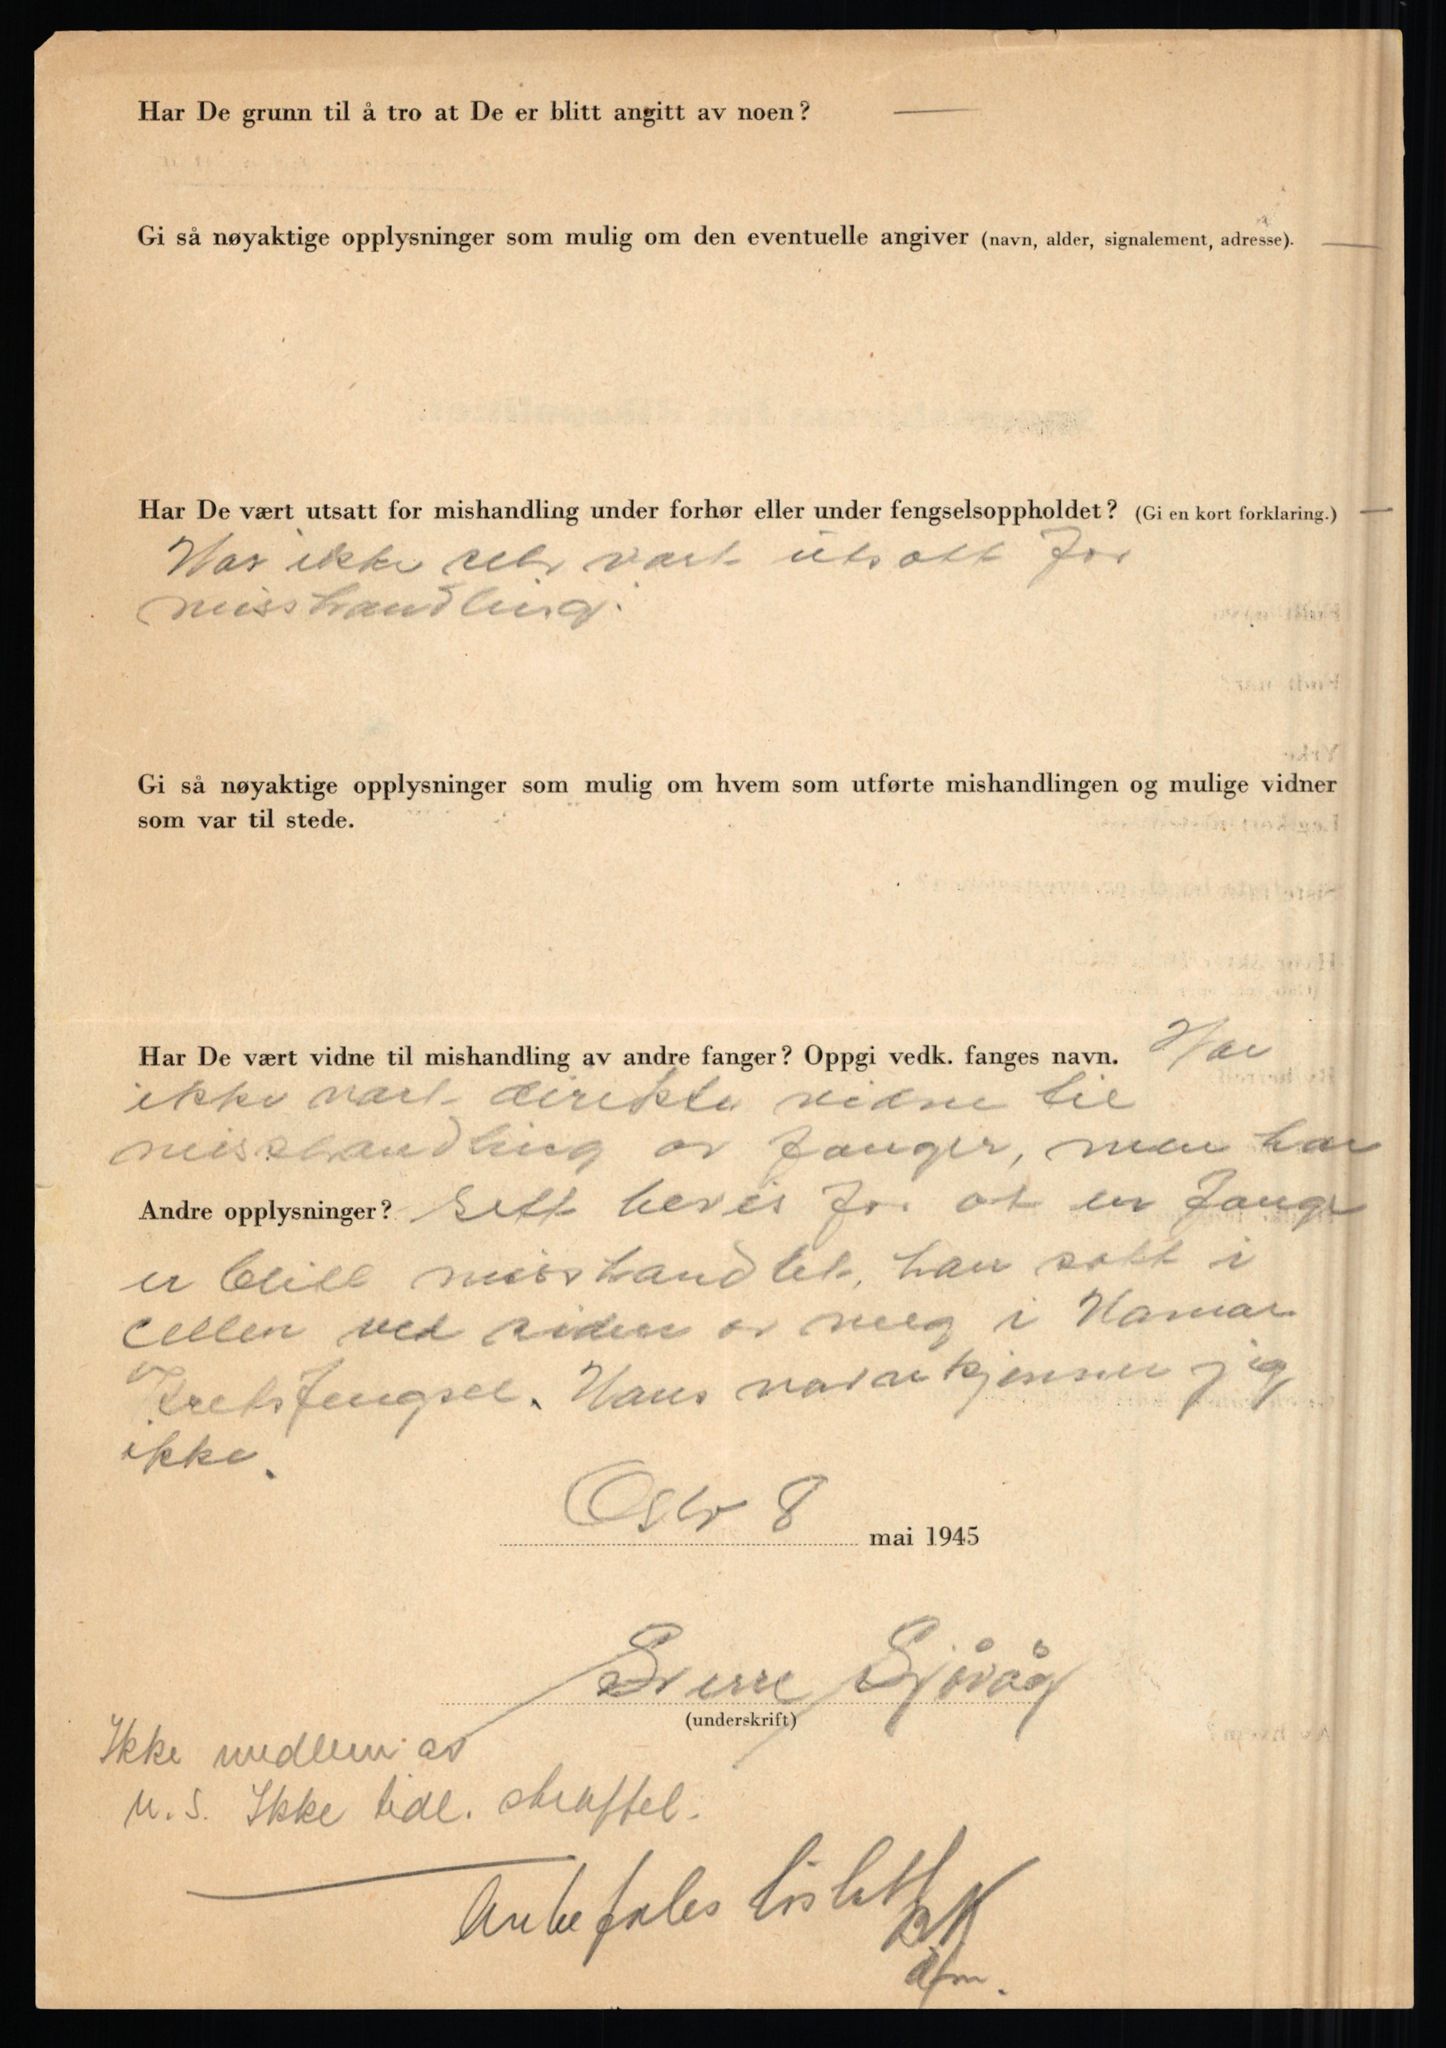 Har De grunn til å tro at De er blitt angitt av noen? —
Gi så nøyaktige opplysninger som mulig om den eventuelle angiver (navn, alder, signalement, adresse). —
Har De vært utsatt for mishandling under forhør eller under fengselsoppholdet? (Gi en kort forklaring.) —
Har ikke selv vært utsatt for
misshandling.
Gi så nøyaktige opplysninger som mulig om hvem som utførte mishandlingen og mulige vidner
som var til stede.
Har De vært vidne til mishandling av andre fanger? Oppgi vedk. fanges navn. Har
ikke vært direkte vidne til
misshandling av fanger, men har
Andre opplysninger? sett bevis for at en fange
er blitt misshandlet, han satt i
cellen ved siden av meg i Hamar
Kretsfengsel. Hans navn kjenner jeg
ikke.
Oslo 8 mai 1945
Sverre Sjøvåg
(underskrift)
Ikke medlem av
N.S. Ikke tidl. straffet.
Anbefales løslatt